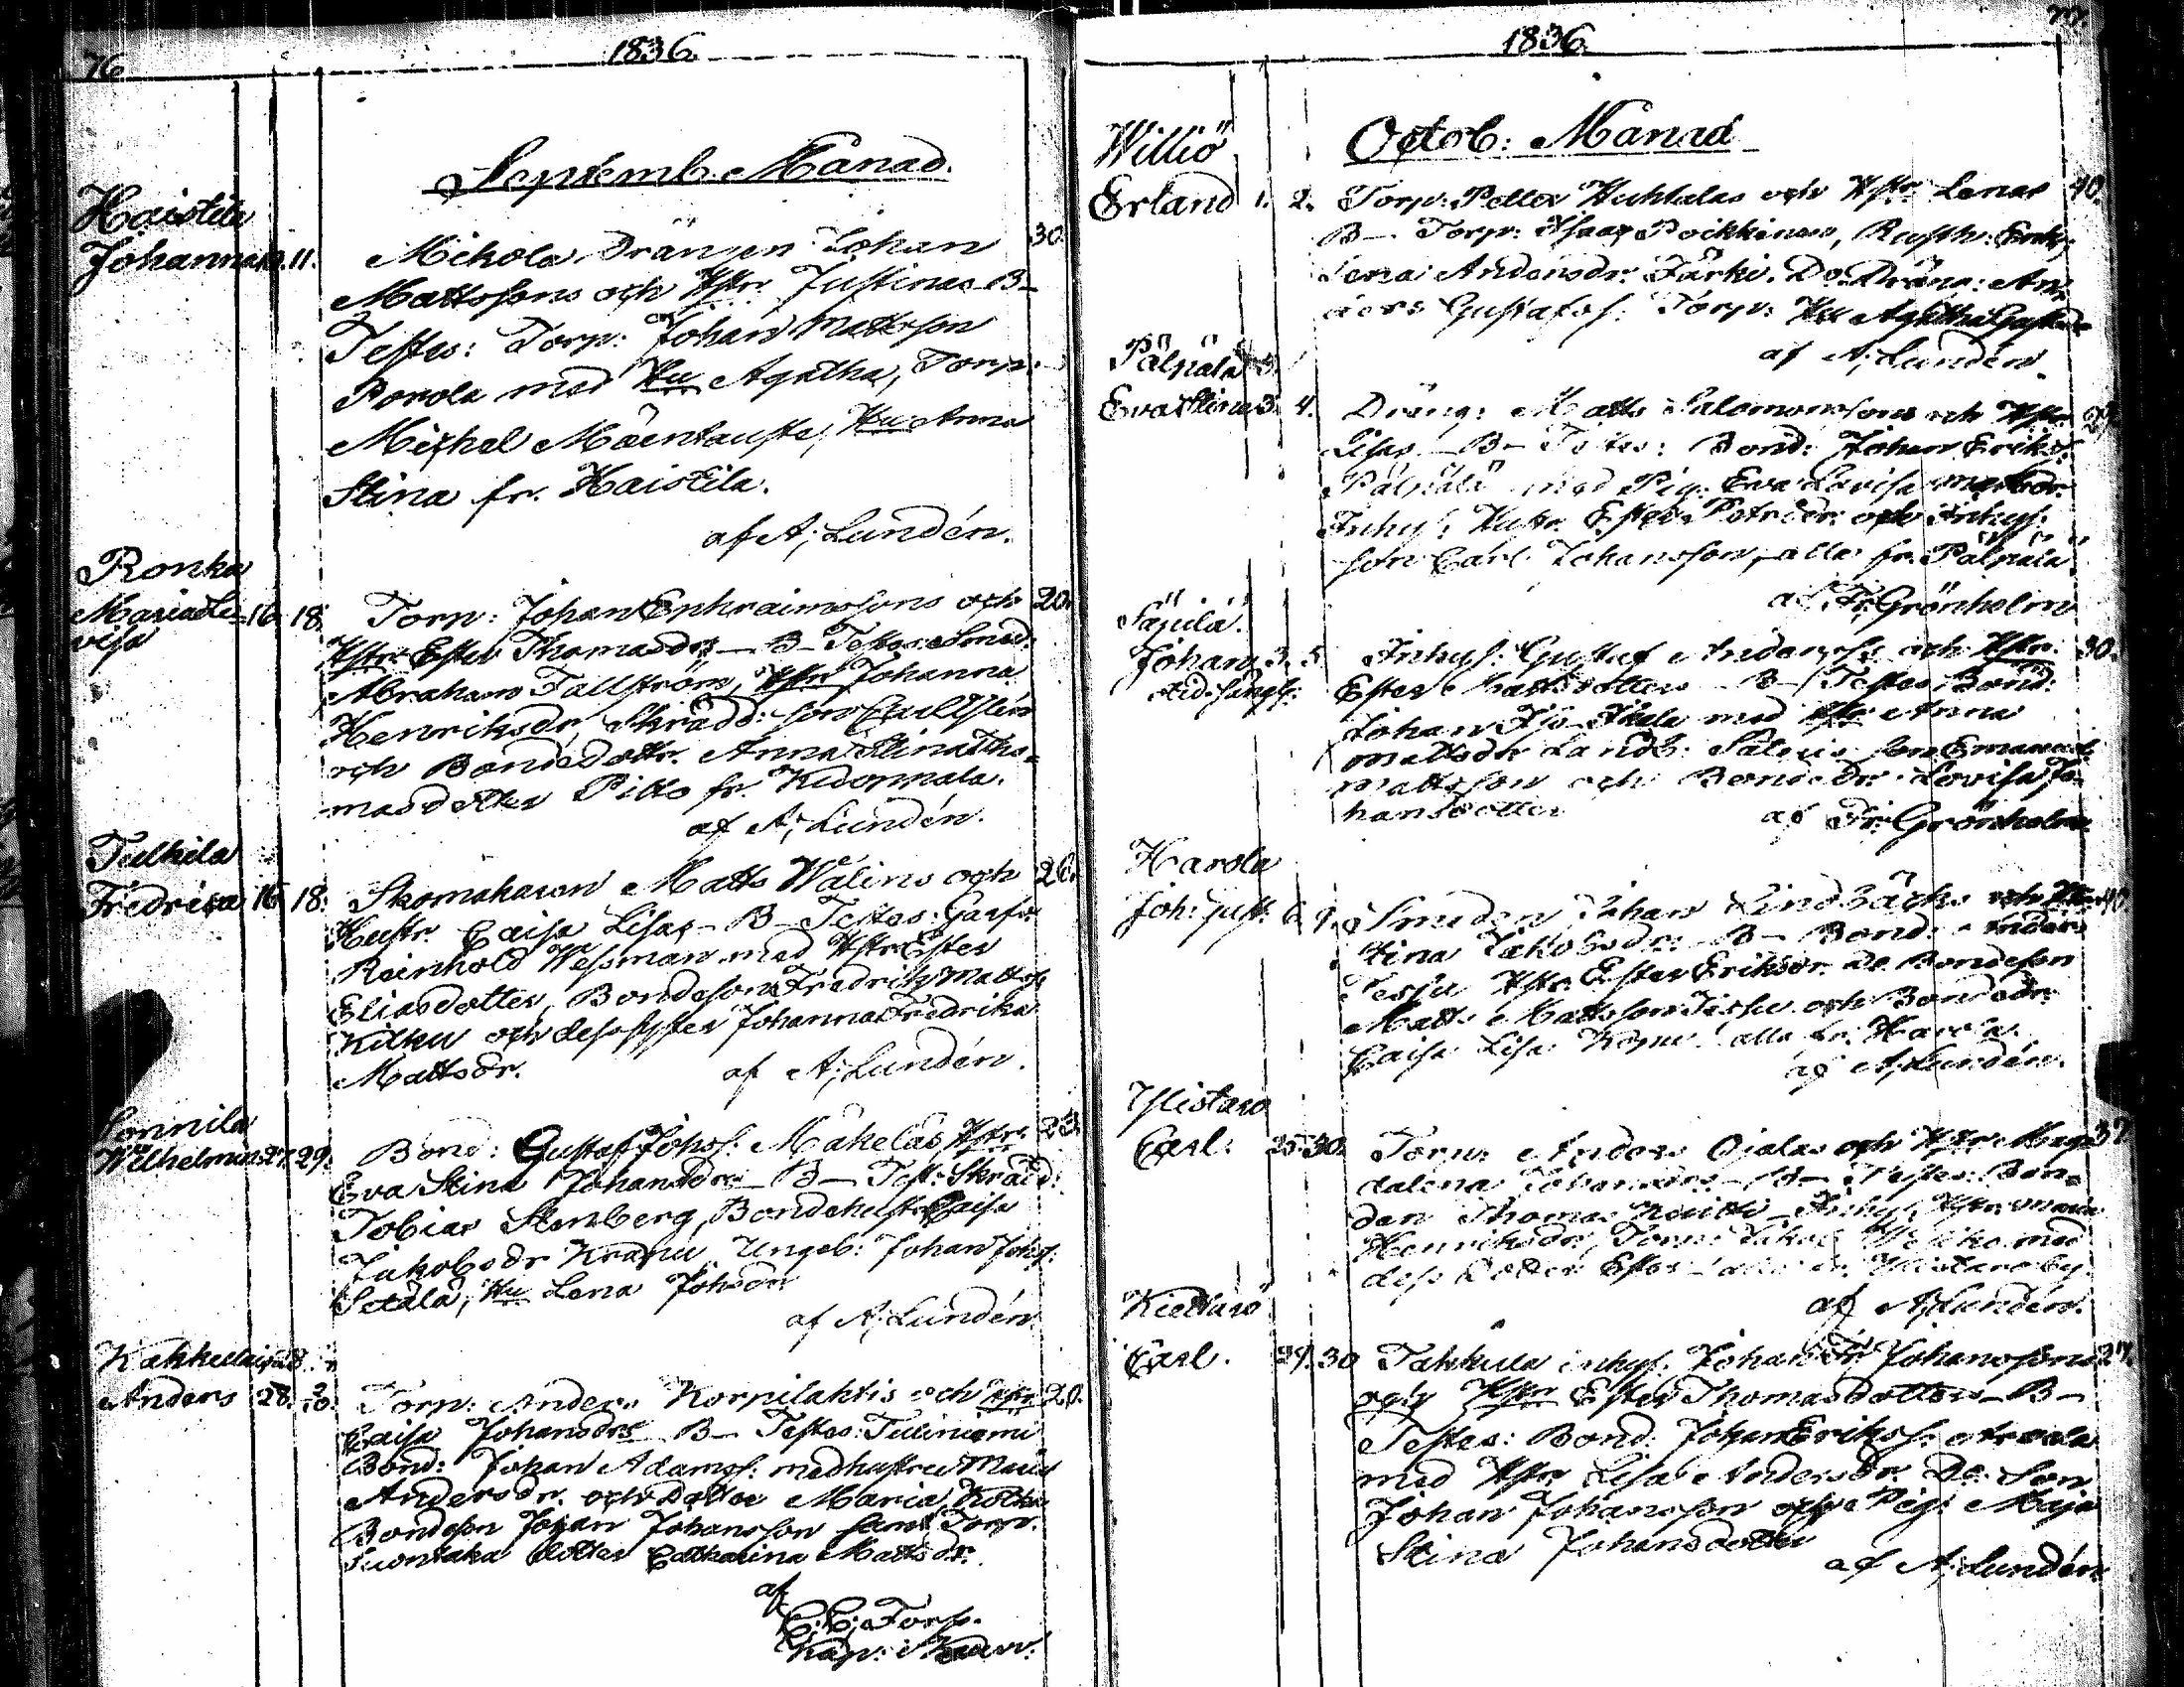 76
1836.
Septemb. Månad.
Haistila
Johanna 10. 11. Mikola Drängen Johan 30.
Mattssons och Hstr. Justinas B-
Testes: Torp: Johan Mattsson
Porola med Hu Agatha, Torp:
Michel Mäentausta, Hu Anna
Stina fr. Haistila.
af A; Lundén.
Ronka
Maria Lo= 16 18. Torp: Johan Ephraimssons och 20.
visa Hstr. Ester Thomasdr. B- Testes: Smed:
Abraham Fallström, Hstr Johanna
Henriksdr, Skrädd: son
och Bondedottr. Anna Stina Tho=
masdotter Pitto fr.
af A; Lundén.
Tulkila
Fredrica 16 18. Skomakaren Matts Walins och 26.
Hustr. Caisa Lisas - B - Testes: Garfv:
Reinhold Wessman med Hstr Ester
Eliasdotter, Bondeson Fredrik Mattss:
Kilkku och dess syster Johanna Fredrika
Mattsdr.
af A; Lundén.
Sonnila
Wilhelmina 27. 29. Bond: Gustaf Johss. Mäkeläs, Hstr.
Eva Stina Johansdrs - B - Test: Skrädd:
Tobias Stenberg, Bondehustr Caisa
Jakobsdr Krapu, Ungeb: Johan Johss:
Setälä, Hu Lena Johsdr
af A; Lundén.
Kakkulais
Anders 28. Torp: Anders Korpilahtis och Hstr 20.
Caisa Johansdrs B- Testes: Tuliniemi
Bond: Johan Adamss: med hustru Maria
Andersdr. och Dotter Maria,
Bondeson Johan Johansson samt Torp:
dotter Catharina Mattsdr.
af
C; C; Forss.
Kap:
77.
1836.
Octob: Månad
Williö
Erland 1. 2. Torp: Petter Huhtalas och Hstr Lenas 40.
B- Torp: Isaac Poikkinen, Rusth: Enk;
Lena Andersdr. Järki. Do Dräng: An=
ders Gustafss: Torp: Hu Agatha
af A; Lundén.
Pälpälä
Eva Stina 3. 4. Dräng: Matts Salomonssons och Hstr
Lisas - B- Testes: Bond: Johan Erikss:
Pälpälä med Pig: Eva Lovisa
Inhys: Hustr. Ester Petridr. och Inhys:
son Carl Johansson, alla fr. Pälpälä
af Fr: Grönholm
Säpilä
Johan 3. 5. Inhys: Gustaf Anderss: och Hstr: 30.
Ester Mattsdotters B- Testes Bond:
Johan med Hu Anna
Mattsdr Landb: son Emanuel
Mattsson och Bondedr. Lovisa Jo=
hansdotter
af Fr: Grönholm
Harola
Joh: Gust: 6. 9. Smeden Johan Lindbäcks och Hstr. 40.
Stina Jakobsdrs. B- Bond: Anders
Tessu Hstr. Ester Eriksdr. do Bondeson
Matts Mattsson Tessu och Bondedr.
Caisa Lisa alla fr: Harola.
af A; Lundén.
Ylistaro
Carl. 25. 30. Torp: Anders Ojalas och Hstr Mag= 37
dalena Johansdrs - B- Testes: Bon=
den Thomas Inhys: Hstr Maria
Henriksdr, Torp: Jakob med
dess dotter Ester alla fr. Ylistaro by.
af A; Lundén.
Carl. 29. 30 Takkula inhys. Johan Johanssons 27.
och Hstr Ester Thomasdotters - B-
Testes: Bond: Johan Erikss:
med Hstr Lisa Andersdr. Do Son
Johan Johansson och Pig: Maja
Stina Johansdotter
af A; Lundén.